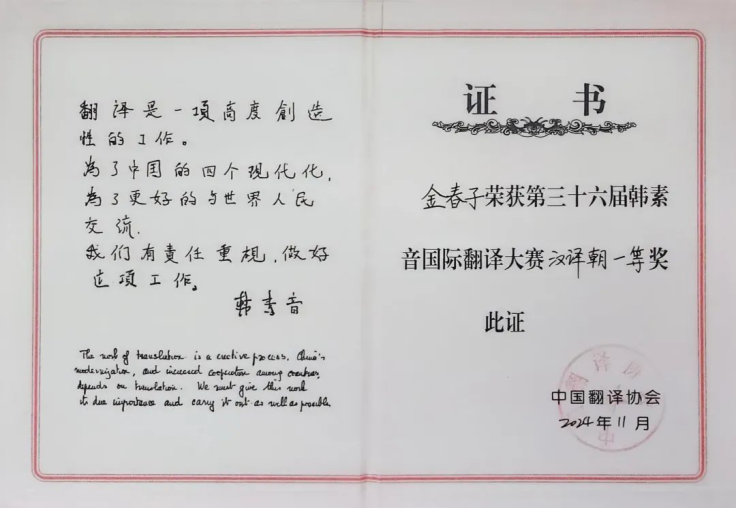 翻译是一項高度創造
性的工作。
為了中国的四个现代化,
為了更好的与世界人民
交流.
我们有責任重視,做好
这項工作。
韩素音
The work of translation is a creative process. China's
modernization, and increased cooperation among countries,
depends on translation. We must give this work
its due importance and carry it out as well as possible.
证 书
金春子荣获第三十六届韩素
音国际翻译大赛汉译朝一等奖
此证
中国翻译协会
2024年11月